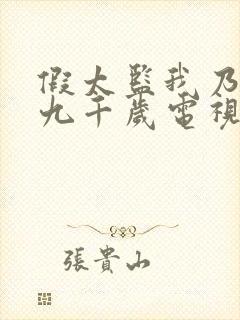 假太監我乃
九千歲電視
張貴山